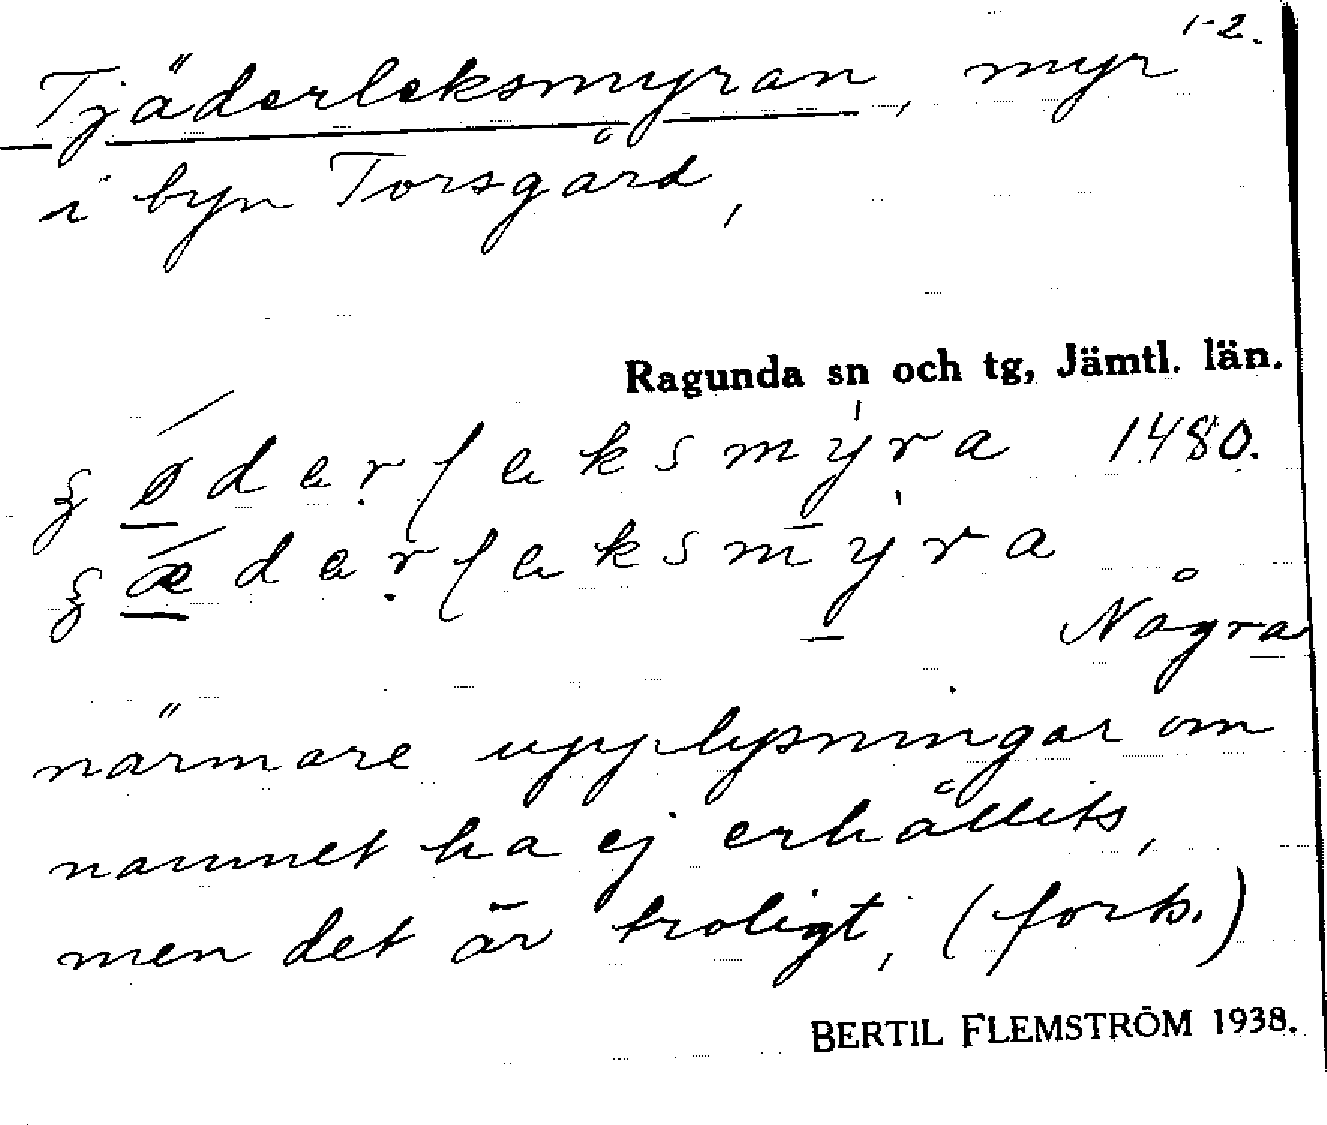 1-2.
Tjäderleksmyran, myr
i byn Torsgård,
Ragunda sn och tg, Jämtl. län.
1480.
Några
närmare upplysningar om
namnet ha ej erhållits,
men det är troligt, (forts.)
BERTIL FLEMSTRÖM 1938.